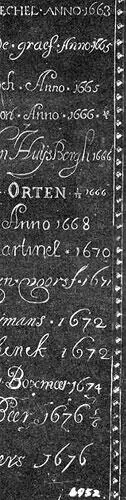 ECHEL · ANNO · 1663
de graef · Anno · 1665
ch · Anno · 1665
ort · Anno · 1666 ·
n Huijs Bergh 1666
· ORTEN · ½ 1666
Anno 1668
artinel · 1670
en · 1671
mans · 1672
unck · 1672
Boxmeer 1674
Beer 1676 ½
ers 1676
6952.